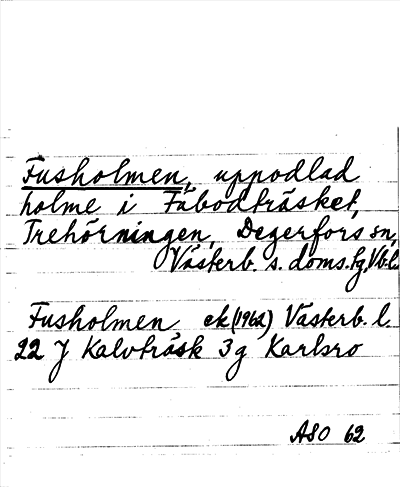 Fusholmen, uppodlad
holme i Fäbodträsket,
Trehörningen, Degerfors sn,
Västerb. s. doms.fg, Vb.l.
Fusholmen ek (1962) Västerb. l.
22 J Kalvträsk 3 g Karlsro
ASO 62